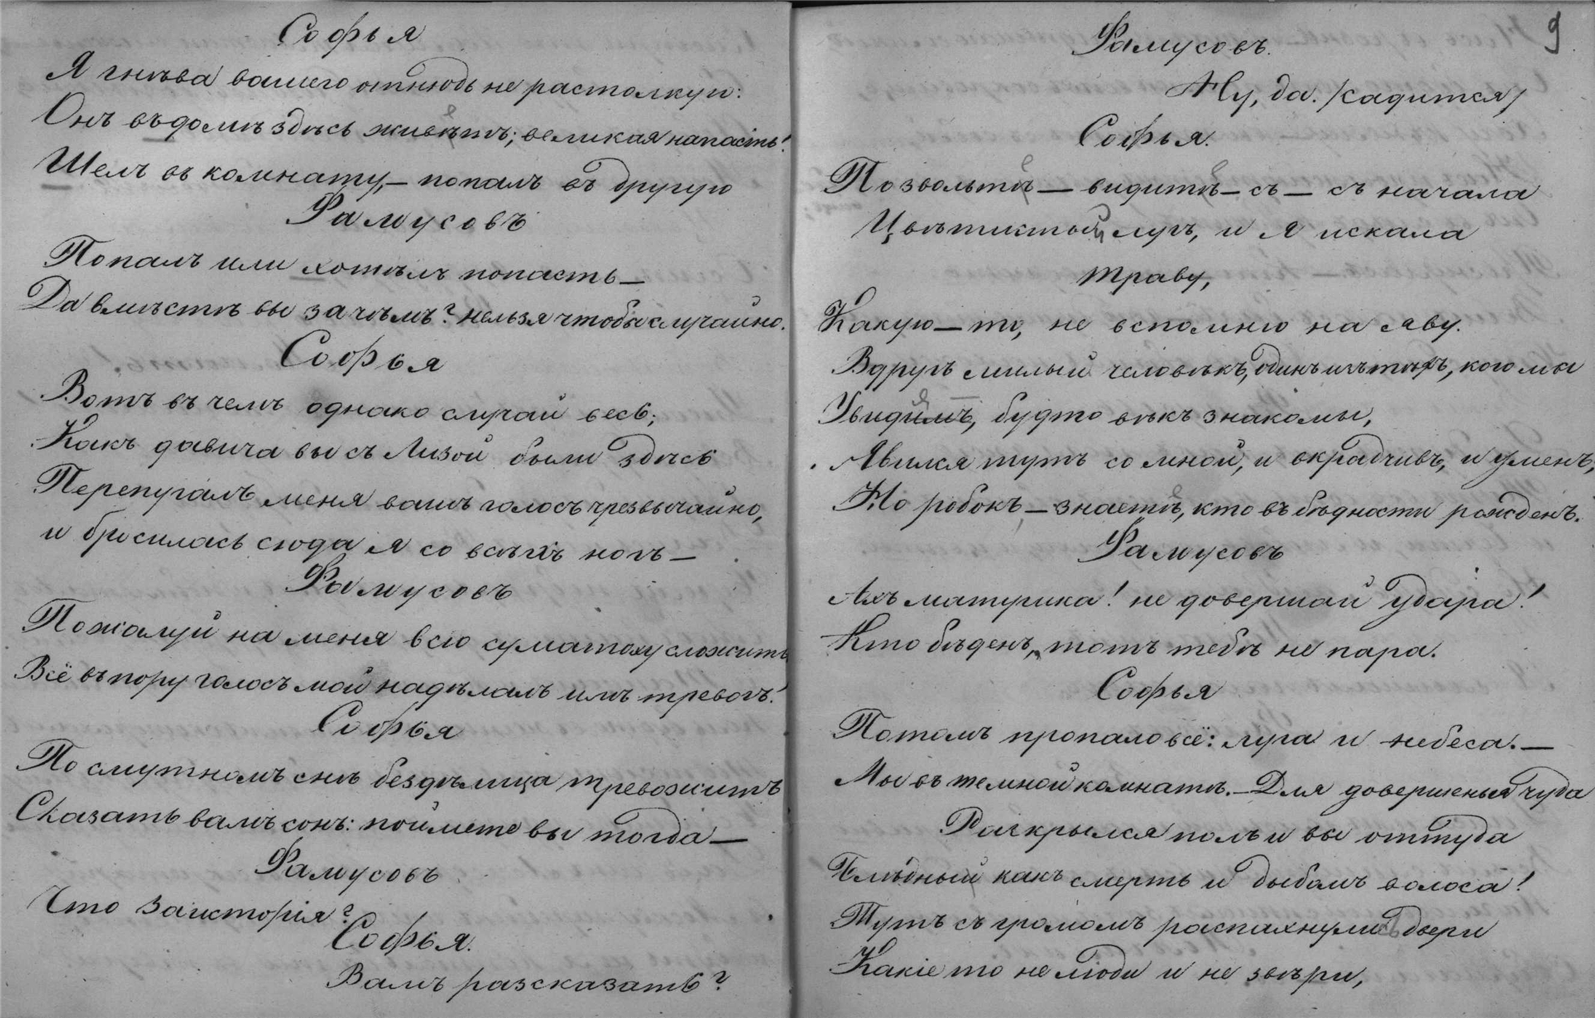 Софья
Я гнѣва вашего отнюдь не растолкую:
Онъ въ домѣ здѣсь живётъ; великая напасть!
Шелъ въ комнату, — попалъ въ другую
Фамусовъ
Попалъ или хотѣлъ попасть —
Да вмѣстѣ вы зачѣмъ? нельзя чтобы случайно.
Софья
Вотъ въ чемъ однако случай весь;
Какъ давича вы съ Лизой были здѣсь
Перепугалъ меня вашъ голосъ чрезвычайно,
и бросилась сюда я со всѣхъ ногъ —
Фамусовъ
Пожалуй на меня всю суматоху сложитъ
Всё въ пору голосъ мой надѣлалъ имъ тревогъ!
Софья
По смутномъ снѣ бездѣлица тревожитъ
Сказать вамъ сонъ: поймете вы тогда —
Фамусовъ
Что за исторія?
Софья.
Вамъ разсказать?
9
Фамусовъ.
Ну, да. /садится/
Софья.
Позвольте — видите — съ — съ начала
Цвѣтистый лугъ, и я искала
траву,
Какую — то, не вспомню на яву.
Вдругъ милый человѣкъ, одинъ изъ тѣхъ, кого мы
Увидимъ, будто вѣкъ знакомы,
Явился тутъ со мной, и вкрадчивъ, и уменъ,
Но робокъ — знаете, кто въ бѣдности рожденъ.
Фамусовъ
Ахъ матушка! не довершай удара!
Кто бѣденъ, тотъ тебѣ не пара.
Софья
Потомъ пропало всё: луга и небеса. —
Мы въ темной комнатѣ. — Для довершенья чуда
Раскрылся полъ и вы оттуда
Блѣдный какъ смерть и дыбомъ волоса!
Тутъ съ громомъ распахнули двери
Какіе то не люди и не звѣри,